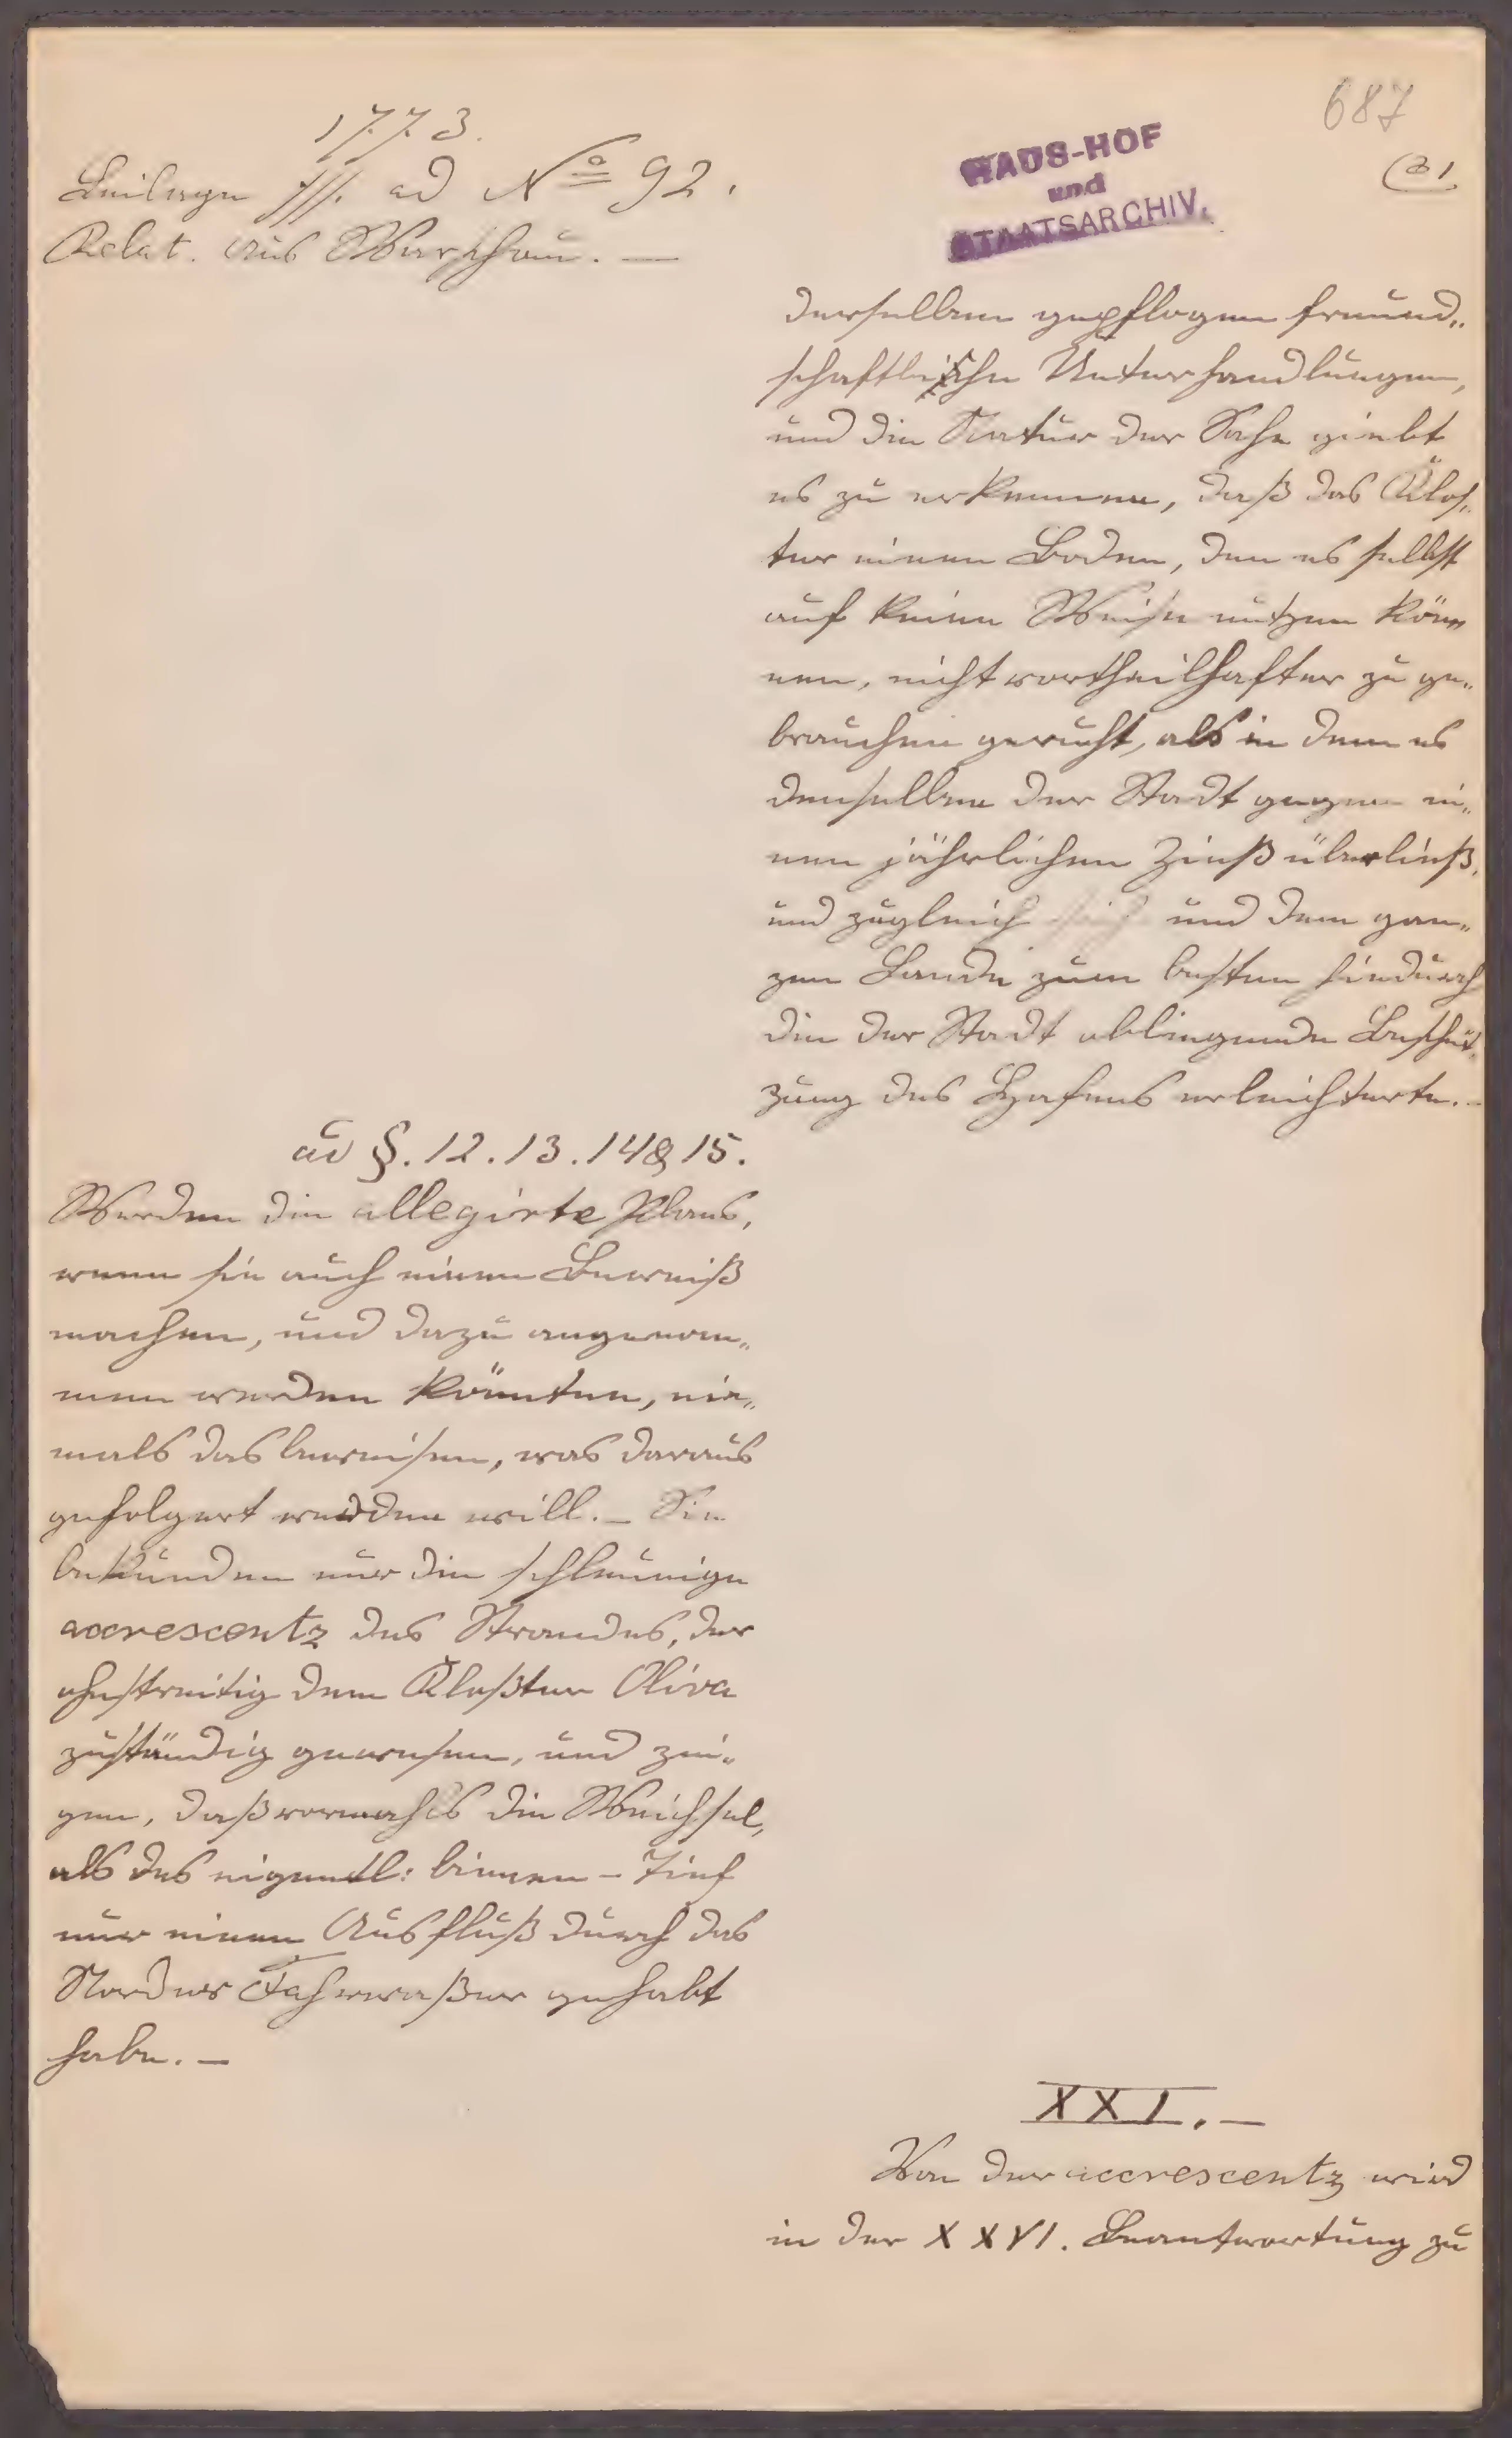 687
31
1773.
Beilage fff. ad No 92.
Relat. aus Warschau. —
HAUS-HOF
und
STAATSARCHIV.
derselben gepflogene freund„
schaftliche Unterhandlungen,
und die Natur der Sache giebt
es zu erkennen, daß das Klos„
ter einen Boden, den es selbst
auf keine Weise nutzen kön„
nen, nicht vortheilhafter zu ge„
brauchen gewußt, als in dem es
denselben der Stadt gegen ei„
nen jährlichen Zinß überließ,
und zugleich sich und dem gan„
zen Lande zum besten hiedurch
die der Stadt obliegende Beschüt„
zung des Hafens erleichterte. —
ad §. 12. 13. 14 & 15.
Werden die allegirte Plans,
wenn sie auch einen Beweiß
machen, und dazu angenom„
men werden könnten, nie„
mals das beweisen, was daraus
gefolgert werden will. — Sie
bekunden nur die schleunige
accrescentz des Strandes, der
ohnstreitig dem Kloßter Oliva
zuständig gewesen, und zei„
gen, daß vormahls die Weichsel,
als das eigentl: binnen - Tief
nur einen Ausfluß durch das
Norder Fahrwaßer gehabt
habe. —
XXI. —
Von der accrescentz wird
in der XXVI. Beantwortung zu